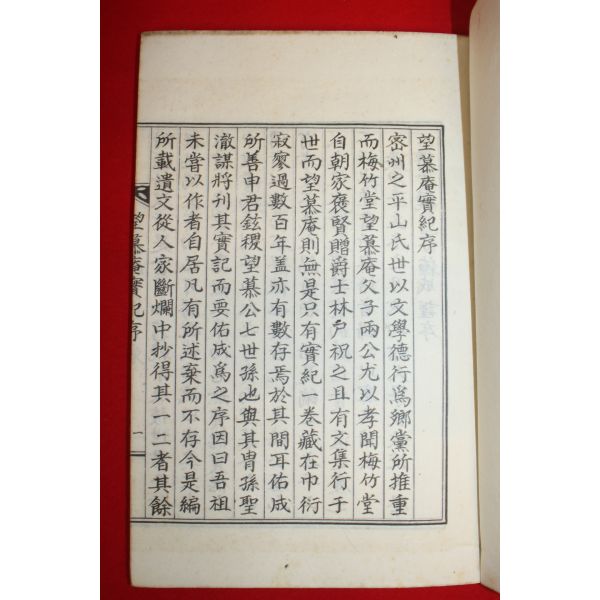 望慕庵實紀序
密州之平山氏世以文學德行爲鄕黨所推重
而梅竹堂望慕庵父子兩公尤以孝聞梅竹堂
自朝家褒賢贈爵士林戶祝之且有文集行于
世而望慕庵則無是只有實紀一卷藏在巾衍
寂寥過數百年盖亦有數存焉於其間耳佑成
所善申君鉉稷望慕公七世孫也與其胄孫聖
澈謀將刊其實記而要佑成爲之序因曰吾祖
未嘗以作者自居凡有所述棄而不存今是編
所載遺文從人家斷爛中抄得其一二者其餘
望慕庵實紀序
一